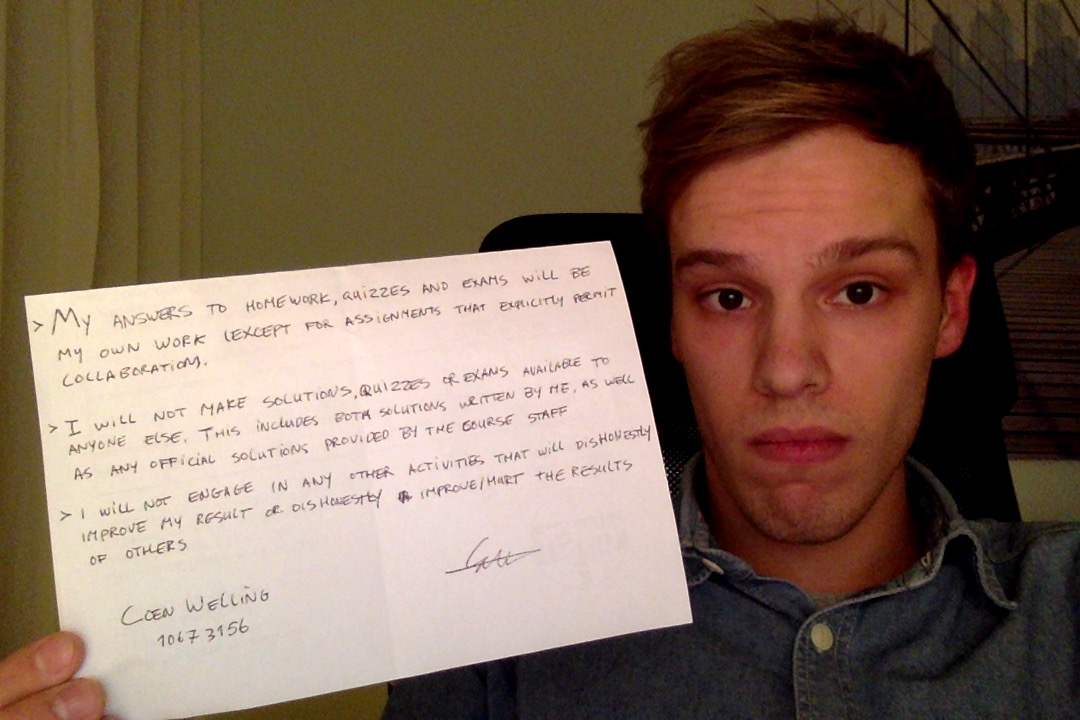 > My ANSWERS TO HOMEWORK, QUIZZES AND EXAMS WILL BE
MY OWN WORK (EXCEPT FOR ASSIGNMENTS THAT EXPLICITLY PERMIT
COLLABORATION).
> I WILL NOT MAKE SOLUTIONS, QUIZZES OR EXAMS AVAILABLE TO
ANYONE ELSE. THIS INCLUDES BOTH SOLUTIONS WRITTEN BY ME, AS WELL
AS ANY OFFICIAL SOLUTIONS PROVIDED BY THE COURSE STAFF
> I WILL NOT ENGAGE IN ANY OTHER ACTIVITIES THAT WILL DISHONESTLY
IMPROVE MY RESULT OR DISHONESTLY IMPROVE/HURT THE RESULTS
OF OTHERS
COEN WELLING
10673156